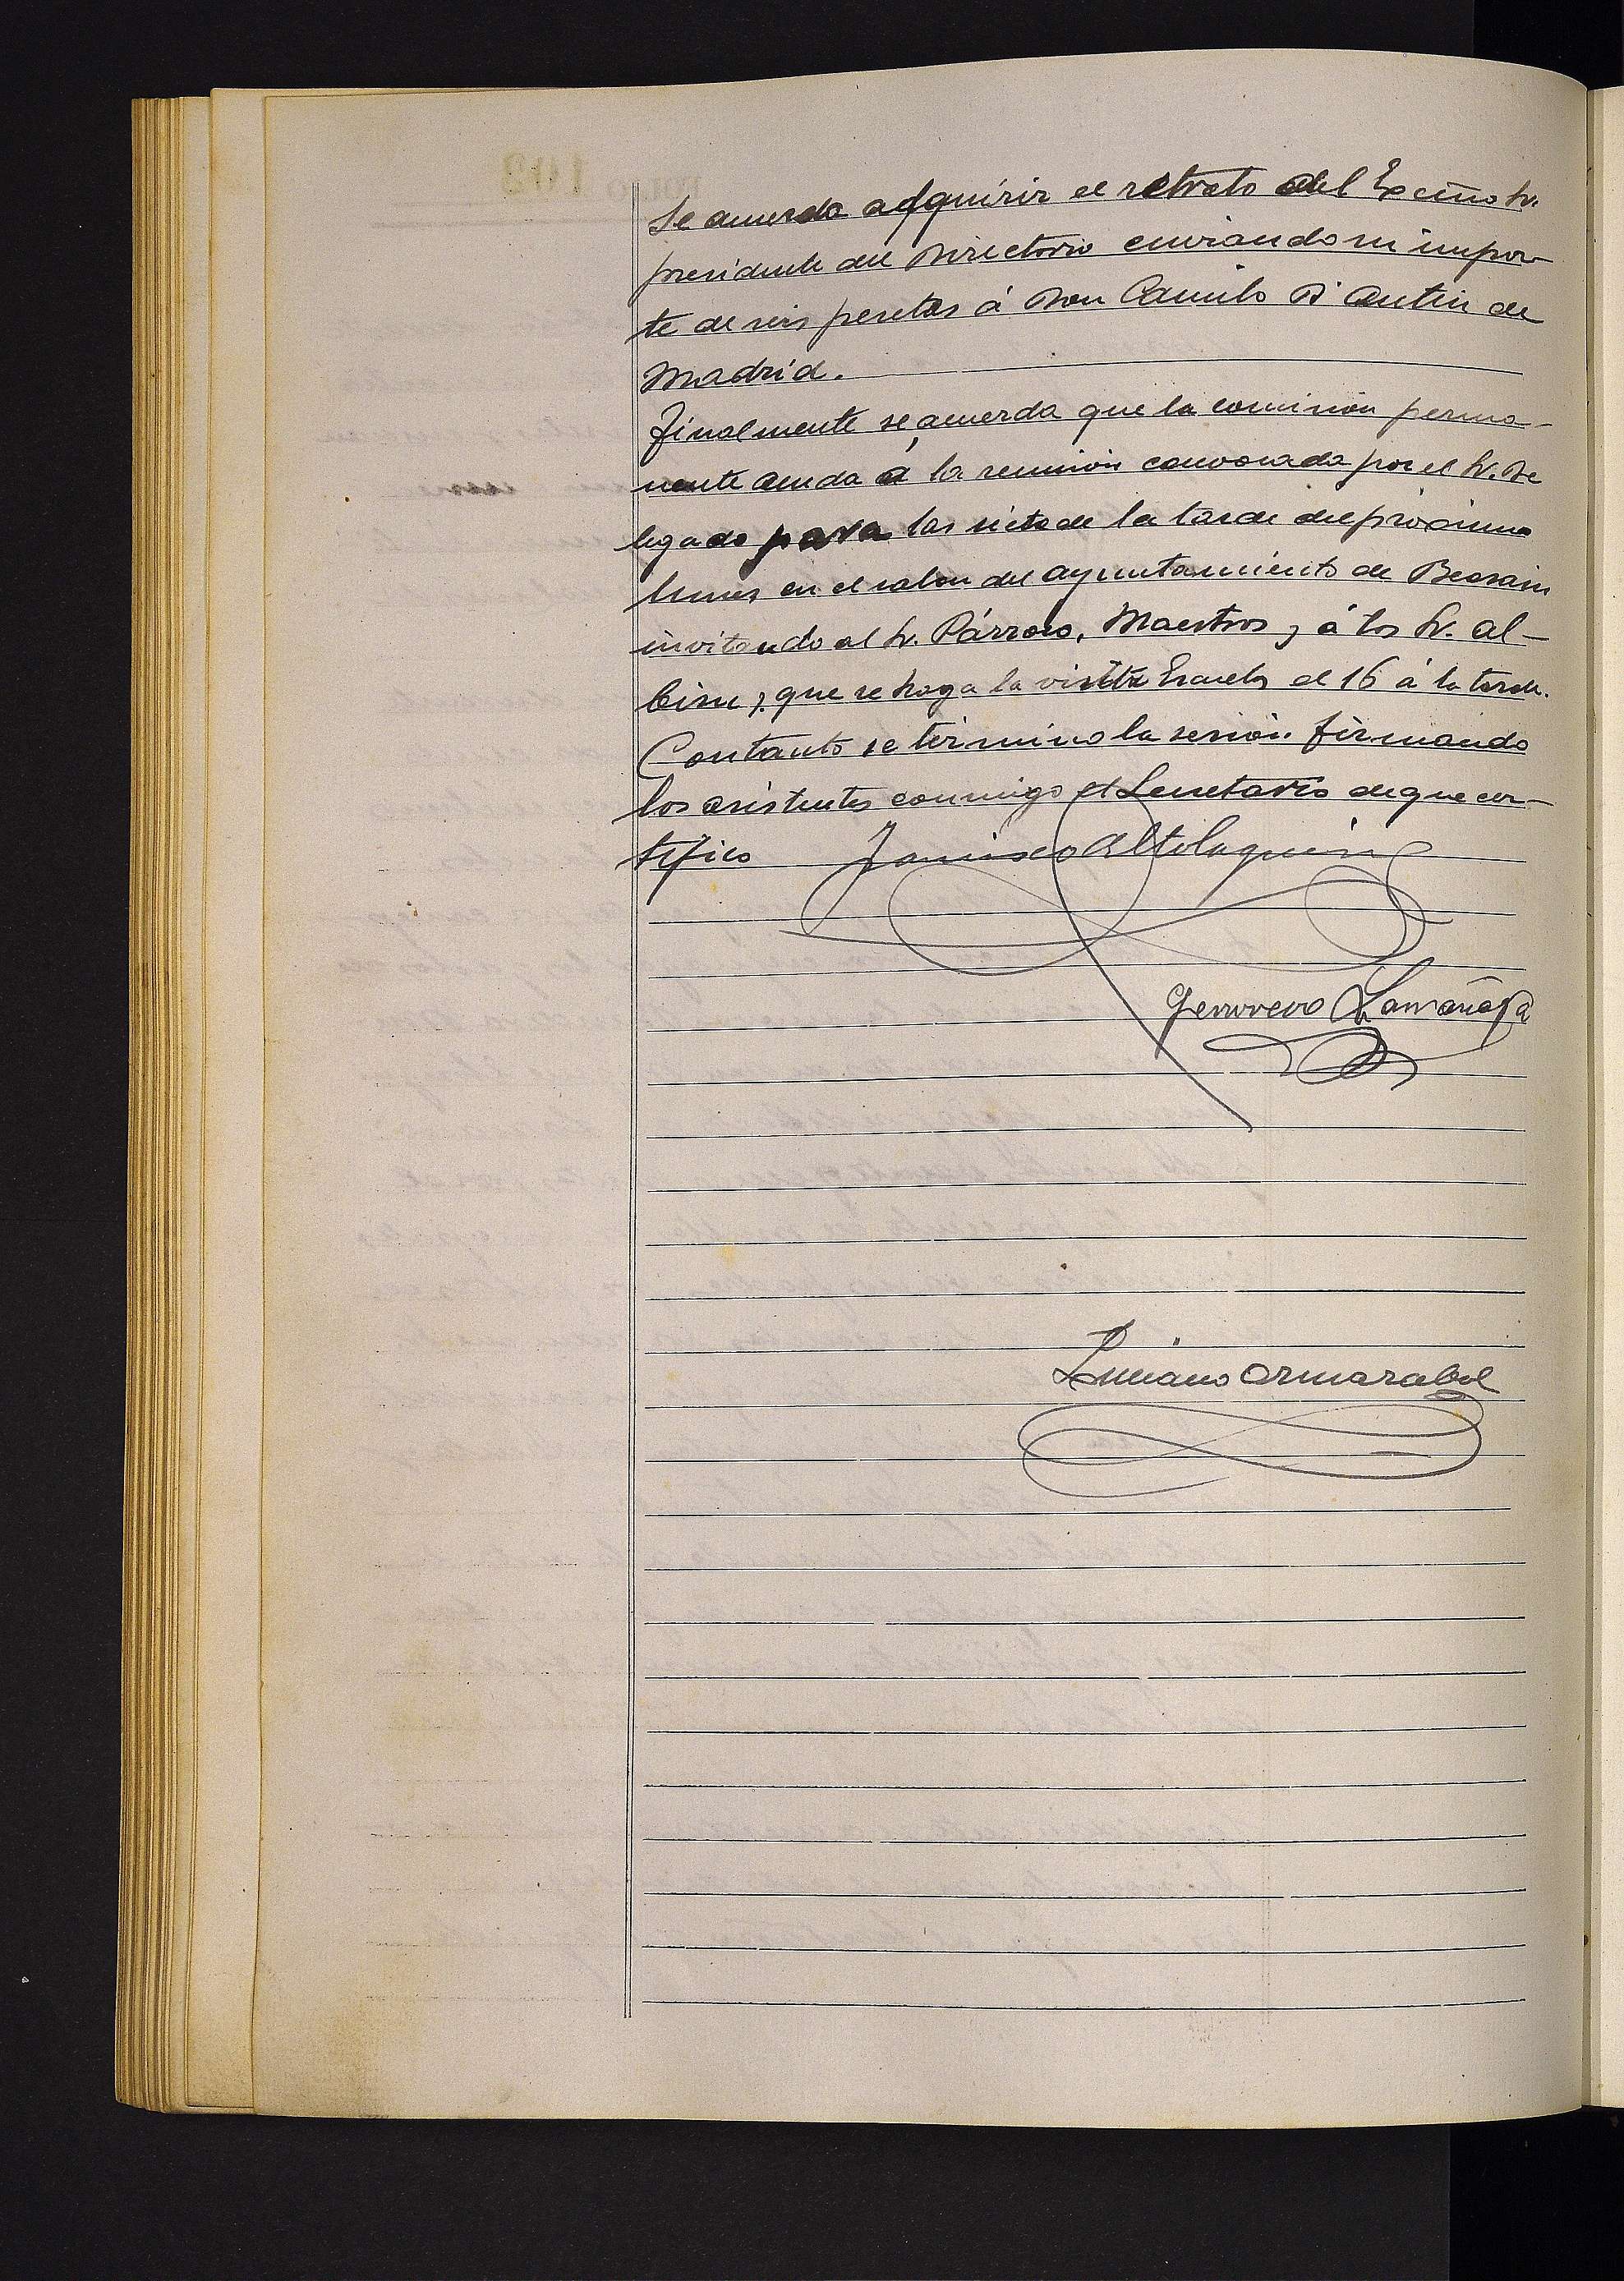 Se acuerda adquirir el retrato del Excmo Sr.
presidente del Directorio enviando su impor-
te de seis pesetas á Don Camilo D' Antin de
Madrid.
Finalmente se acuerda que la comision perma-
nente acuda á la reunion convocada por el Sr. De
legado para las siete de la tarde del proximo
lunes en el salon del ayuntamiento de Beasain
invitando al Sr. Párroco, Maestros y á los Sr. Al-
bisu y que se haga la visita Escuela el 16 á la tarde.
Con tanto se termino la sesión firmando
los asistentes conmigo el Secretario de que cer-
tifico Francisco Altolaguirre
Larrañaga
Luciano Ormazabal